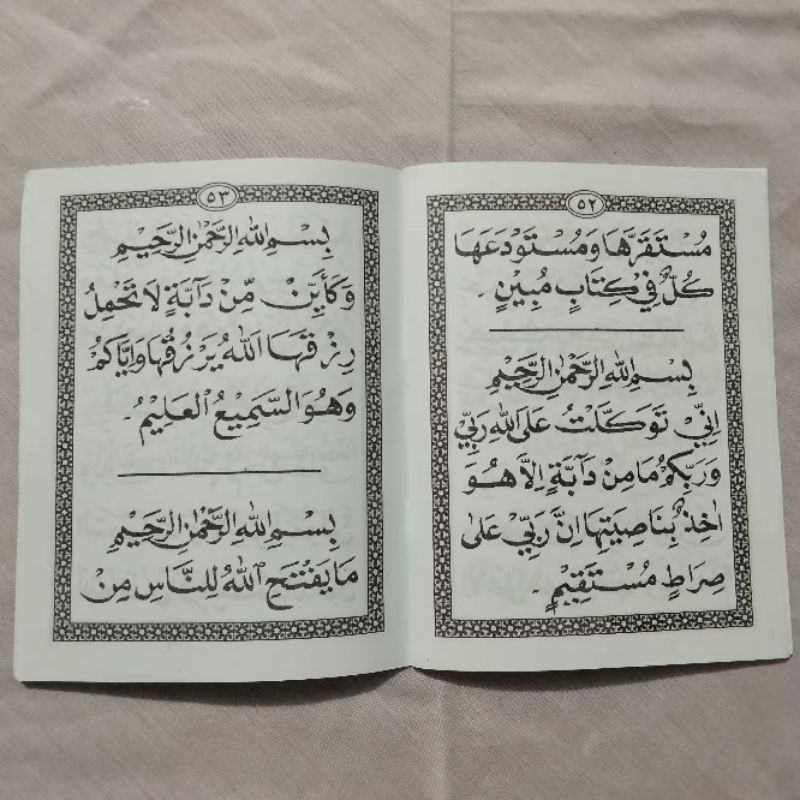 ٥٢
مُسْتَقَرَّهَا وَمُسْتَوْدَعَهَا
كُلٌّ فِيْ كِتَابٍ مُبِيْنٍ .
بِسْمِ اللهِ الرَّحْمٰنِ الرَّحِيْمِ
اِنِّيْ تَوَكَّلْتُ عَلَى اللهِ رَبِّيْ
وَرَبِّكُمْ مَا مِنْ دَآبَّةٍ اِلَّا هُوَ
اٰخِذٌ بِنَاصِيَتِهَا اِنَّ رَبِّيْ عَلَى
صِرَاطٍ مُسْتَقِيْمٍ .
٥٣
بِسْمِ اللهِ الرَّحْمٰنِ الرَّحِيْمِ
وَكَأَيِّنْ مِّنْ دَآبَّةٍ لَا تَحْمِلُ
رِزْقَهَا اَللهُ يَرْزُقُهَا وَاِيَّاكُمْ
وَهُوَ السَّمِيْعُ الْعَلِيْمُ .
بِسْمِ اللهِ الرَّحْمٰنِ الرَّحِيْمِ
مَا يَفْتَحِ اللهُ لِلنَّاسِ مِنْ